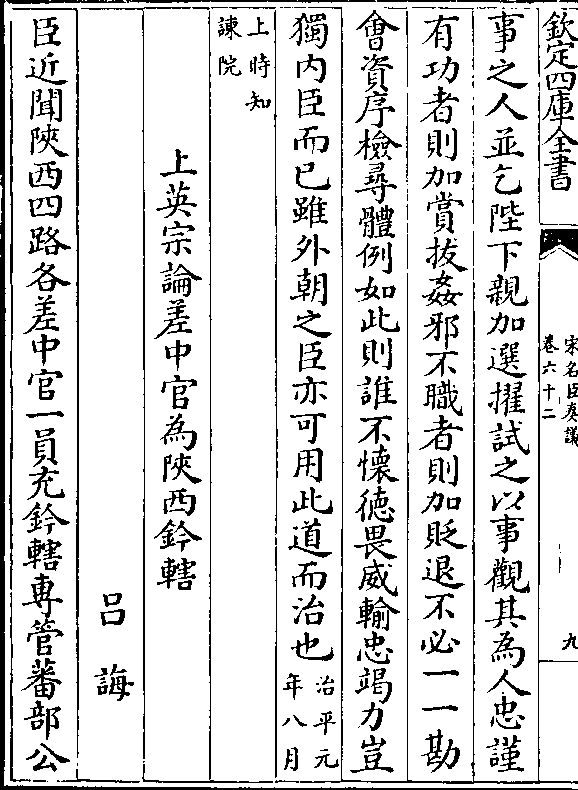 欽定四庫全書
宋名臣奏議
卷六十二
九
事之人並乞陛下親加選擢試之以事觀其為人忠謹
有功者則加賞拔姦邪不職者則加貶退不必一一勘
會資序檢尋體例如此則誰不懷徳畏威輸忠竭力豈
獨内臣而已雖外朝之臣亦可用此道而治也治平元年八月
上時知諫院
上英宗論差中官為陜西鈐轄
吕誨
臣近聞陜西四路各差中官一員充鈐轄専管蕃部公